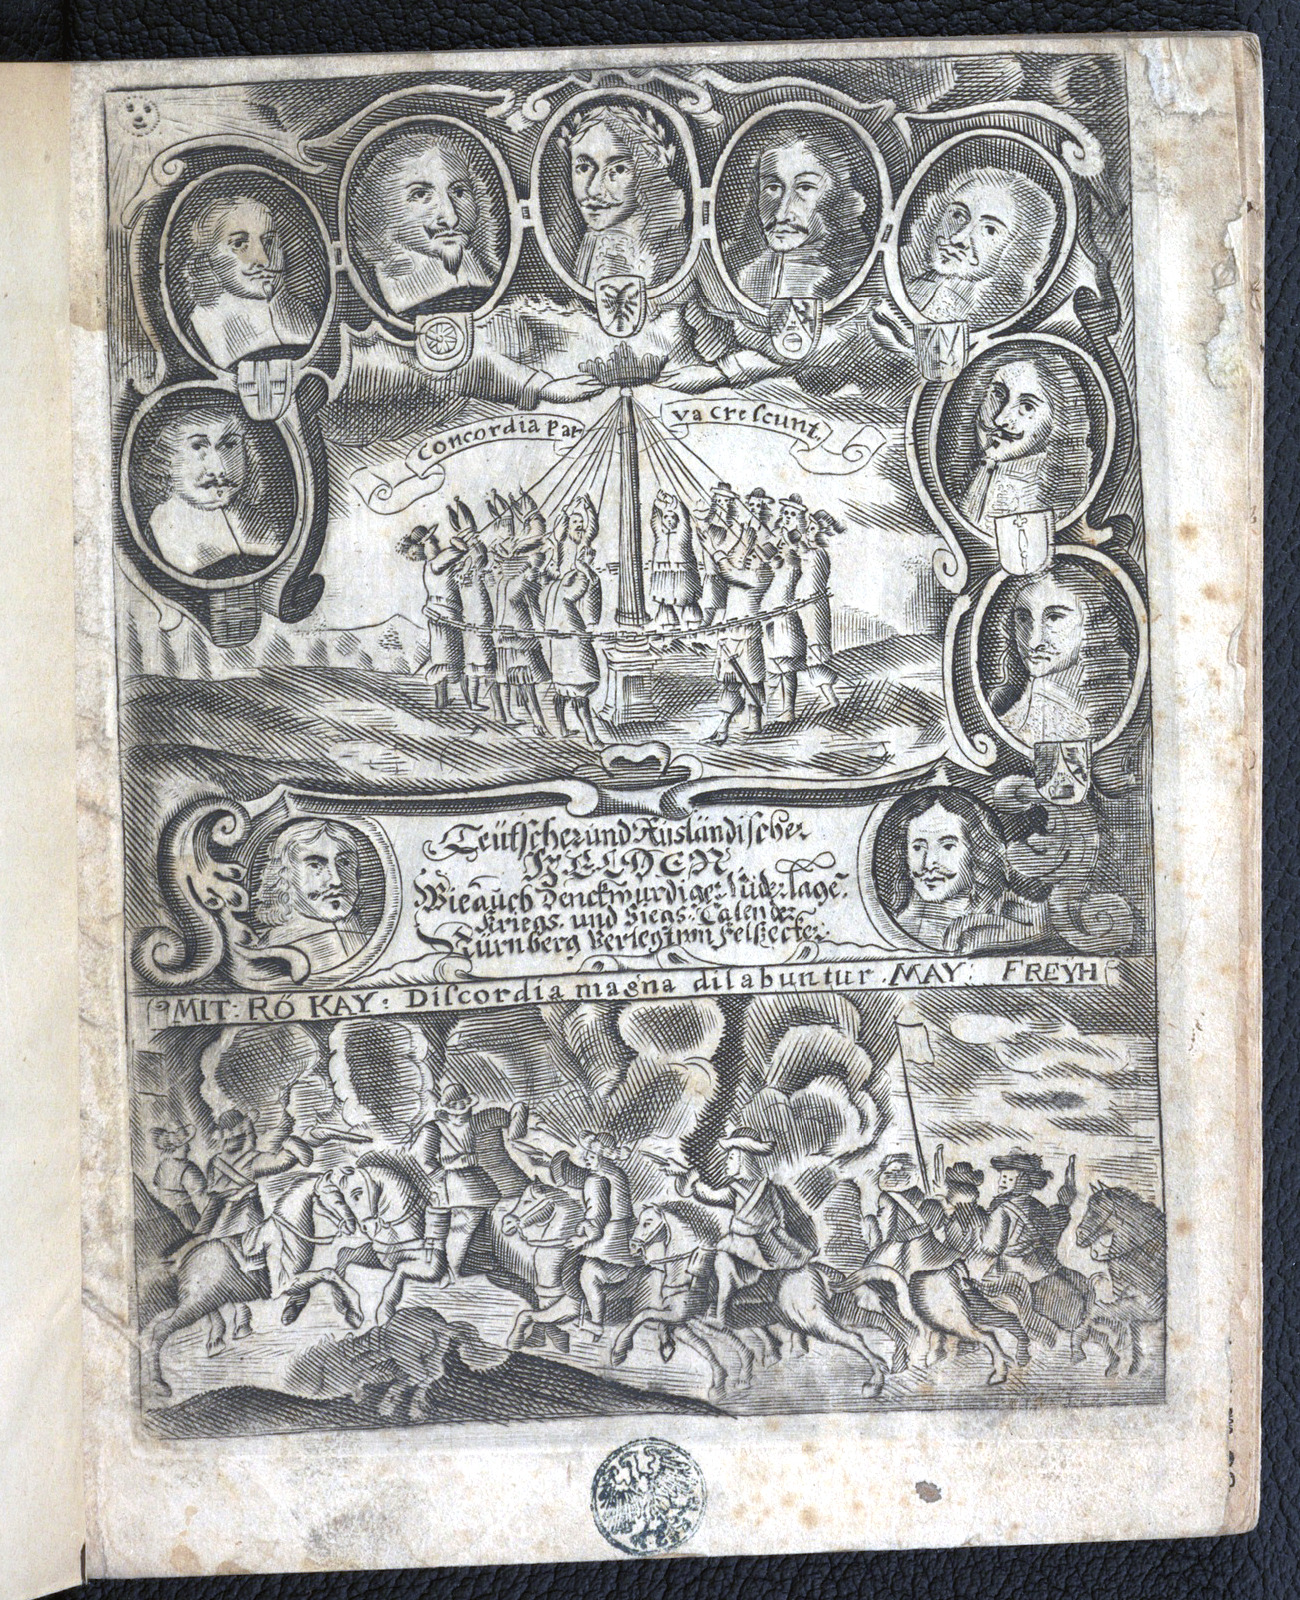 Concordia Par
va crescunt.
Teütscher und Ausländischer
HELDEN
Wie auch Denckwürdiger Niderlage,
Kriegs. und Siegs-Calender
Nürnberg Verlegt von Felsecker.
MIT: RÖ KAY: Discordia magna dilabuntur. MAY: FREŸH